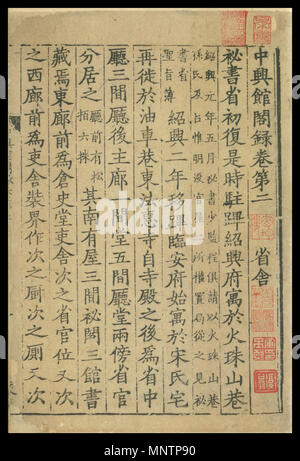 中興館閣錄卷第二
省舍
祕書省初復是時駐蹕紹興府寓於火珠山巷
紹興元年五月祕書少監程俱請以火珠山巷
孫氏及
書省
聖旨薄
紹興二年移蹕臨安府始寓於宋氏宅
再徙於油車巷東法慧寺自寺殿之後爲省中
廳三間廳後主廊一間堂五間廳堂兩傍省官
分居之
廳前有松
柏六株
其南有屋三間祕閣三館書
藏焉東廊前爲倉史堂吏舍次之省官位又次
之西廊前爲吏舍裝界作次之厨次之厠又次
alamy
Image ID: MNTP90
www.alamy.com